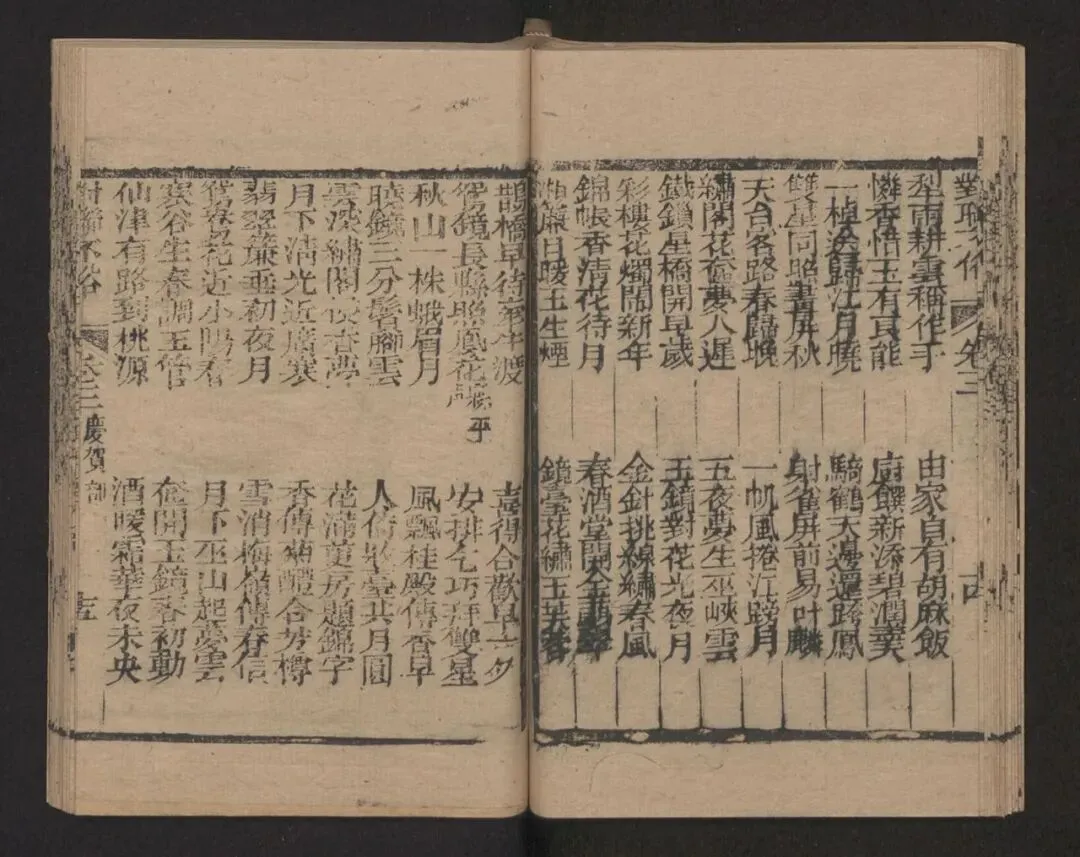 對聯不俗 卷三
犁雨耕雲稱作手 由家自有胡麻飯
憐香惜玉有良能 廚饌新添碧澗羹
一植 歸江月曉 騎鶴天邊還跨鳳
雙星同照畫屏秋 射雀屏前易叶麟
天台名路春歸晚 一帆風捲江 月
繡閣花 夢入遲 五夜夢生巫峽雲
鐵鎖星橋開早歲 玉鏡對花光夜月
彩樓花燭鬧新年 金針挑線繡春風
錦帳香清花待月 春酒堂開金翡翠
簾日暖玉生煙 鏡臺花繡玉芙蓉
鵲橋早待牽牛渡 喜得合歡早一夕
鴛鏡長懸照鳳花 安排乞巧拜雙星
秋山一株蛾眉月 風飄桂殿傳香早
曉鏡三分鬢腳雲 人倚妝臺共月圓
雲深繡閣 香夢 花滿 房題錦字
月下清光近廣寒 香傳蘭醴合芳樽
翡翠簾垂初夜月 雪消梅嶺傳春信
鴛鴦花近小陽春 月下巫山起夢雲
寒谷生春調玉管 奩開玉鏡春初動
仙津有路到桃源 酒暖霜華夜未央
對聯不俗 卷三 慶賀部